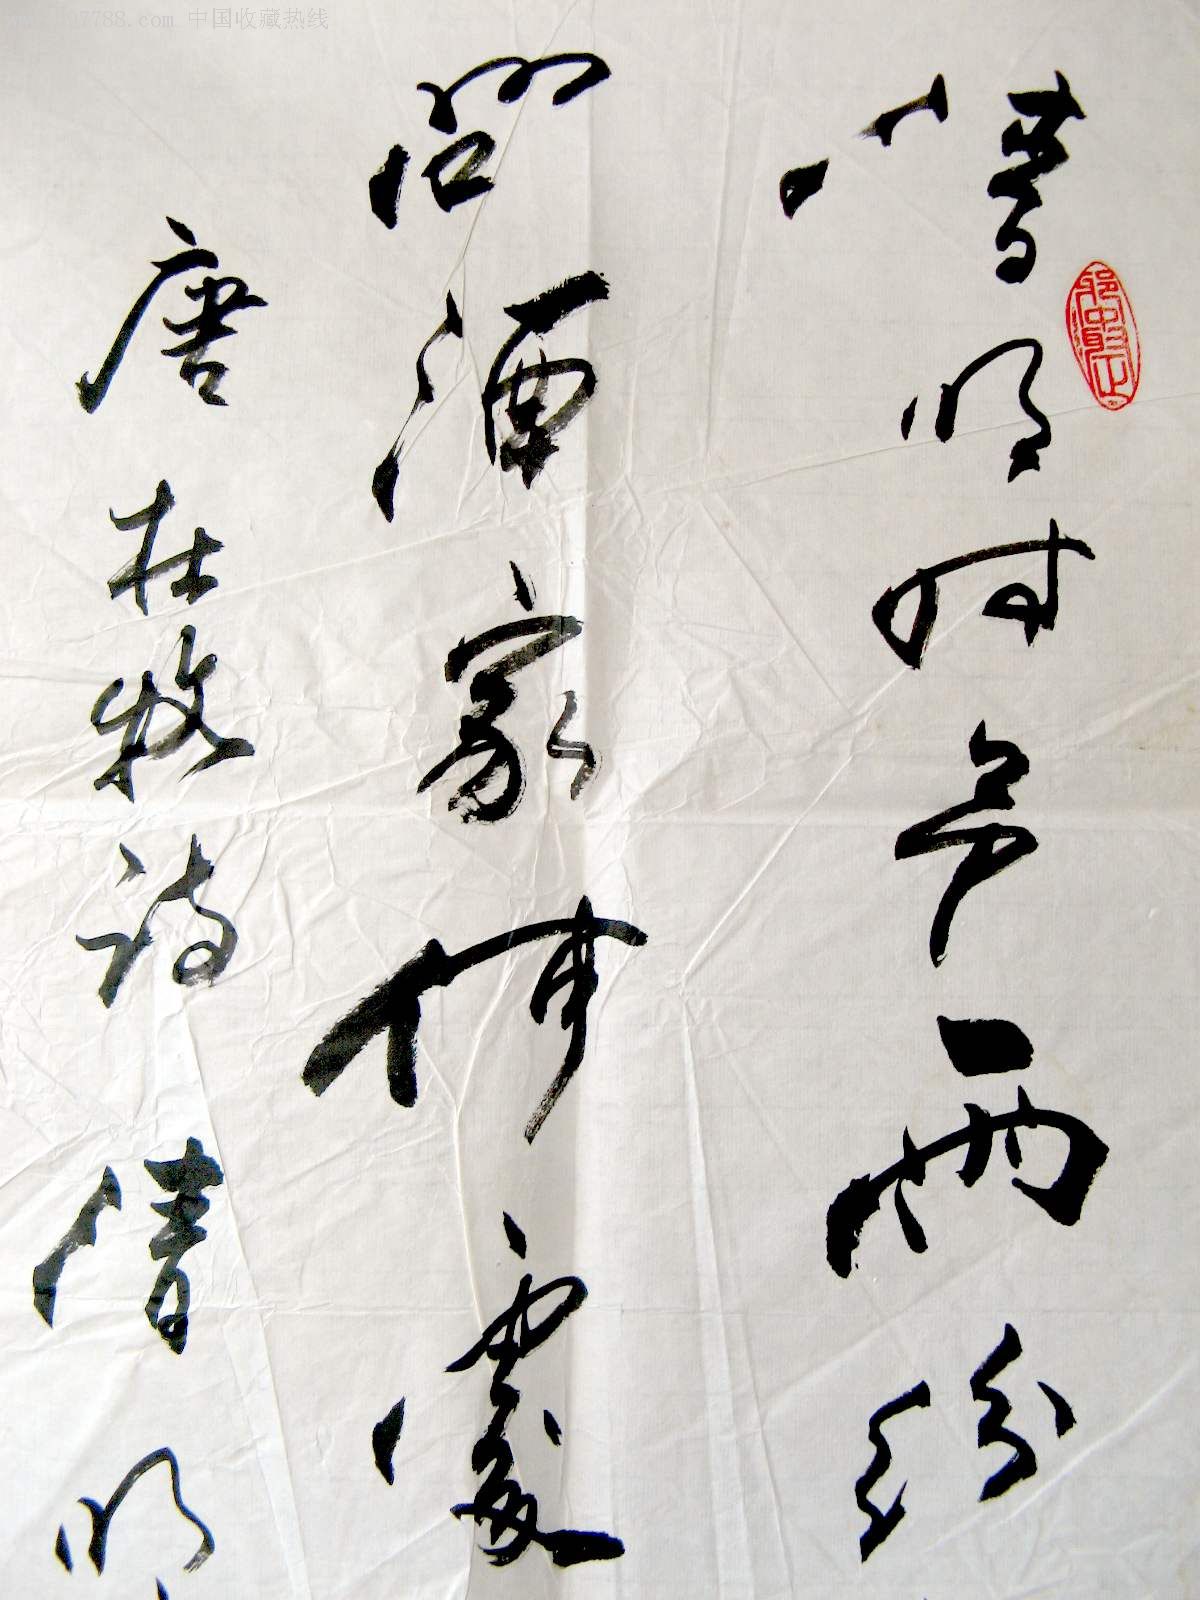 清明时节雨纷
借问酒家何处
唐杜牧诗清明
7788.com 中国收藏热线